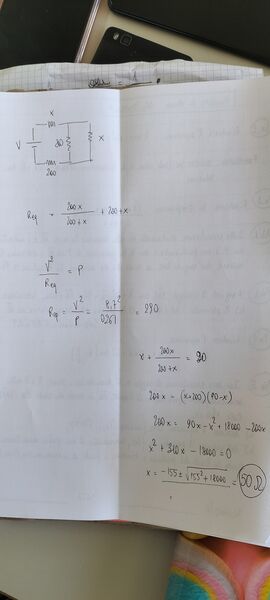 x
V
200
x
200
Req = 200x / 200+x + 200+x
V² / Req = P
Req = V² / P = 8,7² / 0,261 = 290
x + 200x / 200+x = 90
200x = (x+200)(90-x)
200x = 90x - x² + 18000 - 200x
x² + 310x - 18000 = 0
x = -155 ± √155² + 18000 = 50 Ω